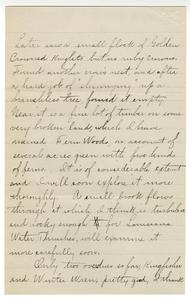 Later saw a small flock of Golden
Crowned Knights but no ruby crowns.
Found another crow's nest, and after
a hard job of "shinnying" up a
branchless tree found it empty.
Near it is a fine lot of timber on some
very broken land, which I have
named Fern Woods, on account of
several acres green with five kinds
of ferns. It is of considerable extent
and I will soon explore it more
thoroughly. A small brook flows
through it which I think is
and rocky enough for Louisiana
Water Thrushes, will examine it
more carefully soon.
Only two so far Kingfisher
and Winter Wren, pretty good, I think